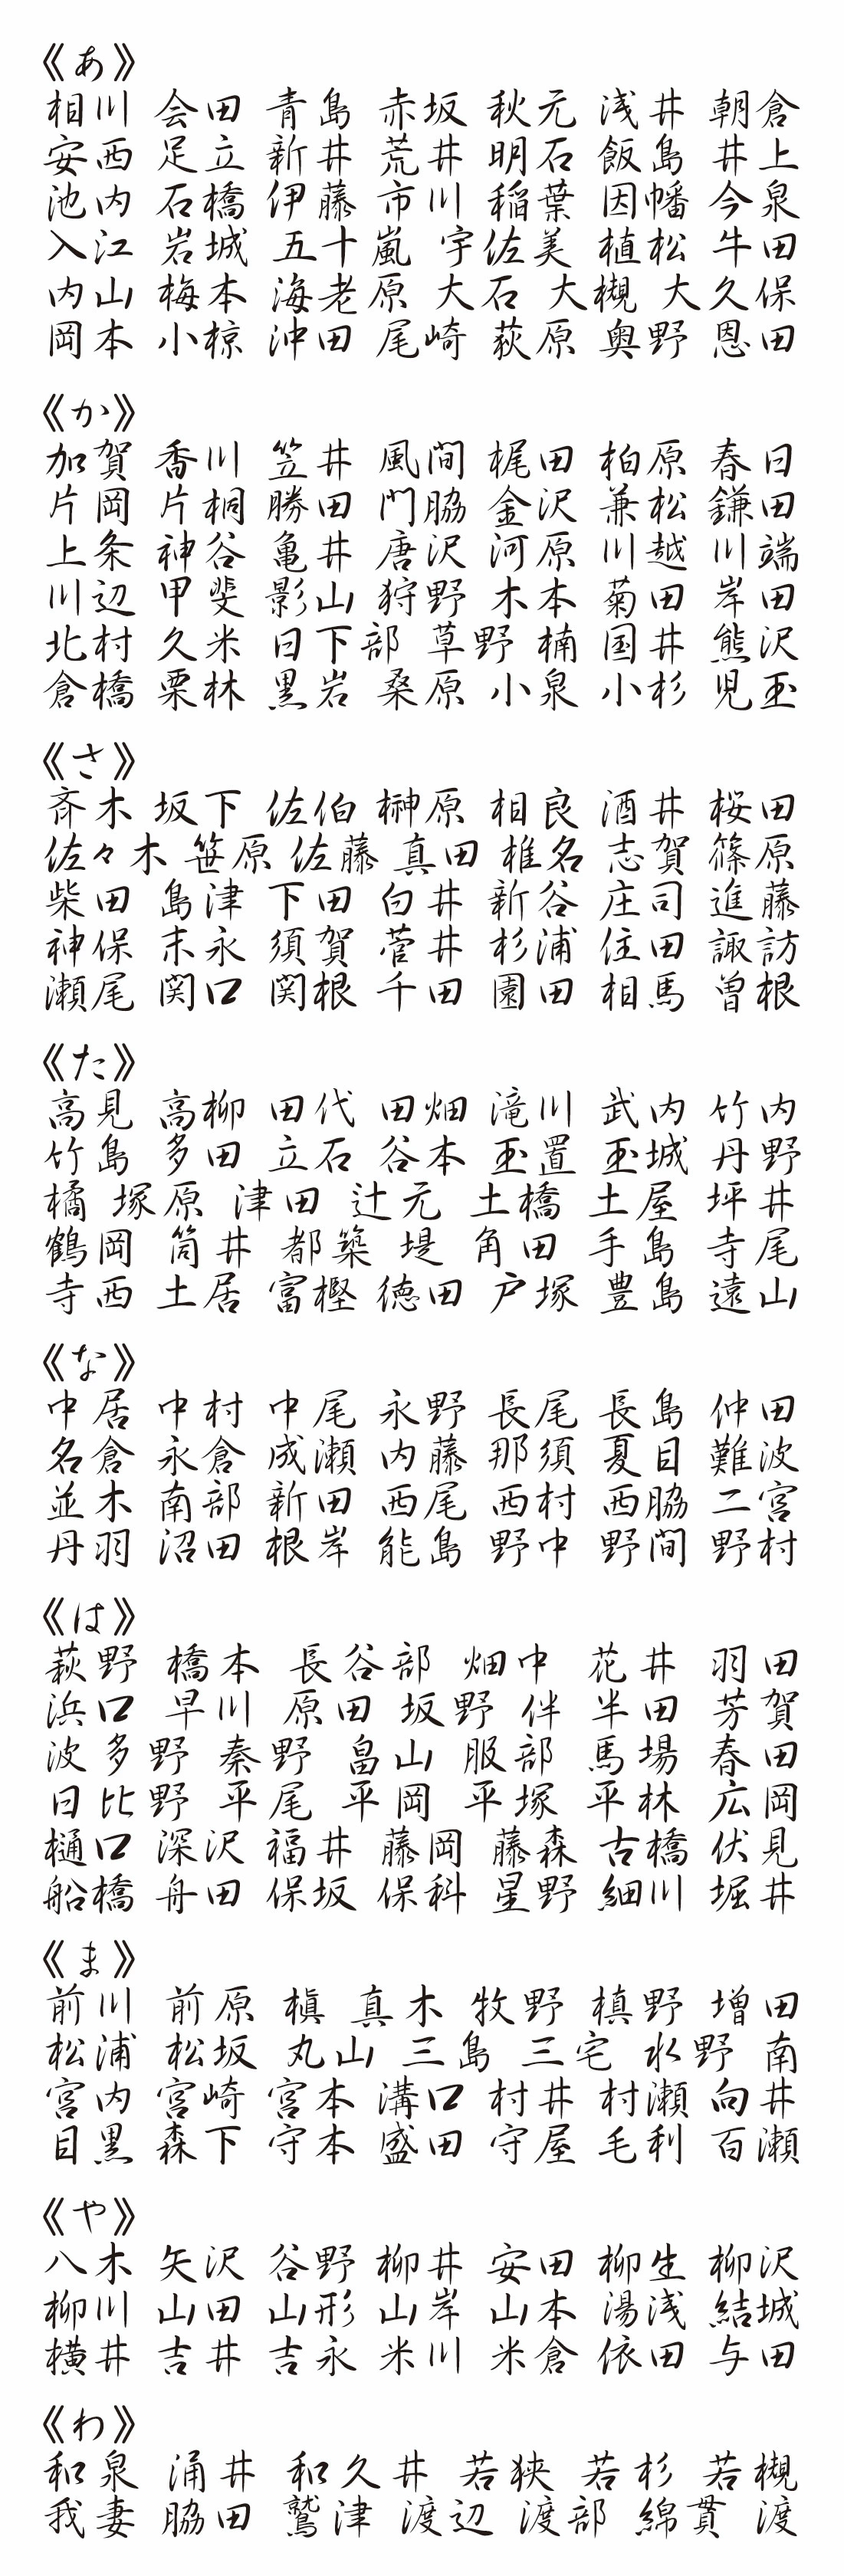 《あ》
相川 会田 青島 赤坂 秋元 浅井 朝倉
安西 足立 新井 荒井 明石 飯島 井上
池内 石橋 伊藤 市川 稲葉 因幡 今泉
入江 岩城 五十嵐 宇佐美 植松 牛田
内山 梅本 海老原 大石 大槻 大久保
岡本 小椋 沖田 尾崎 荻原 奥野 恩田
《か》
加賀 香川 笠井 風間 梶田 柏原 春日
片岡 片桐 勝田 門脇 金沢 兼松 鎌田
上条 神谷 亀井 唐沢 河原 川越 川端
川辺 甲斐 影山 狩野 木本 菊田 岸田
北村 久米 日下部 草野 楠 国井 熊沢
倉橋 栗林 黒岩 桑原 小泉 小杉 児玉
《さ》
斉木 坂下 佐伯 榊原 相良 酒井 桜田
佐々木 笹原 佐藤 真田 椎名 志賀 篠原
柴田 島津 下田 白井 新谷 庄司 進藤
神保 末永 須賀 菅井 杉浦 住田 諏訪
瀬尾 関口 関根 千田 園田 相馬 曽根
《た》
高見 高柳 田代 田畑 滝川 武内 竹内
竹島 多田 立石 谷本 玉置 玉城 丹野
橘 塚原 津田 辻元 土橋 土屋 坪井
鶴岡 筒井 都築 堤 角田 手島 寺尾
寺西 土居 富樫 徳田 戸塚 豊島 遠山
《な》
中居 中村 中尾 永野 長尾 長島 仲田
名倉 永倉 成瀬 内藤 那須 夏目 難波
並木 南部 新田 西尾 西村 西脇 二宮
丹羽 沼田 根岸 能島 野中 野間 野村
《は》
萩野 橋本 長谷部 畑中 花井 羽田
浜口 早川 原田 坂野 伴 半田 芳賀
波多野 秦野 畠山 服部 馬場 春田
日比野 平尾 平岡 平塚 平林 広岡
樋口 深沢 福井 藤岡 藤森 古橋 伏見
船橋 舟田 保坂 保科 星野 細川 堀井
《ま》
前川 前原 槇 真木 牧野 槙野 増田
松浦 松坂 丸山 三島 三宅 水野 南
宮内 宮崎 宮本 溝口 村井 村瀬 向井
目黒 森下 守本 盛田 守屋 毛利 百瀬
《や》
八木 矢沢 谷野 柳井 安田 柳生 柳沢
柳川 山田 山形 山岸 山本 湯浅 結城
横井 吉井 吉永 米川 米倉 依田 与田
《わ》
和泉 涌井 和久井 若狭 若杉 若槻
我妻 脇田 鷲津 渡辺 渡部 綿貫 渡